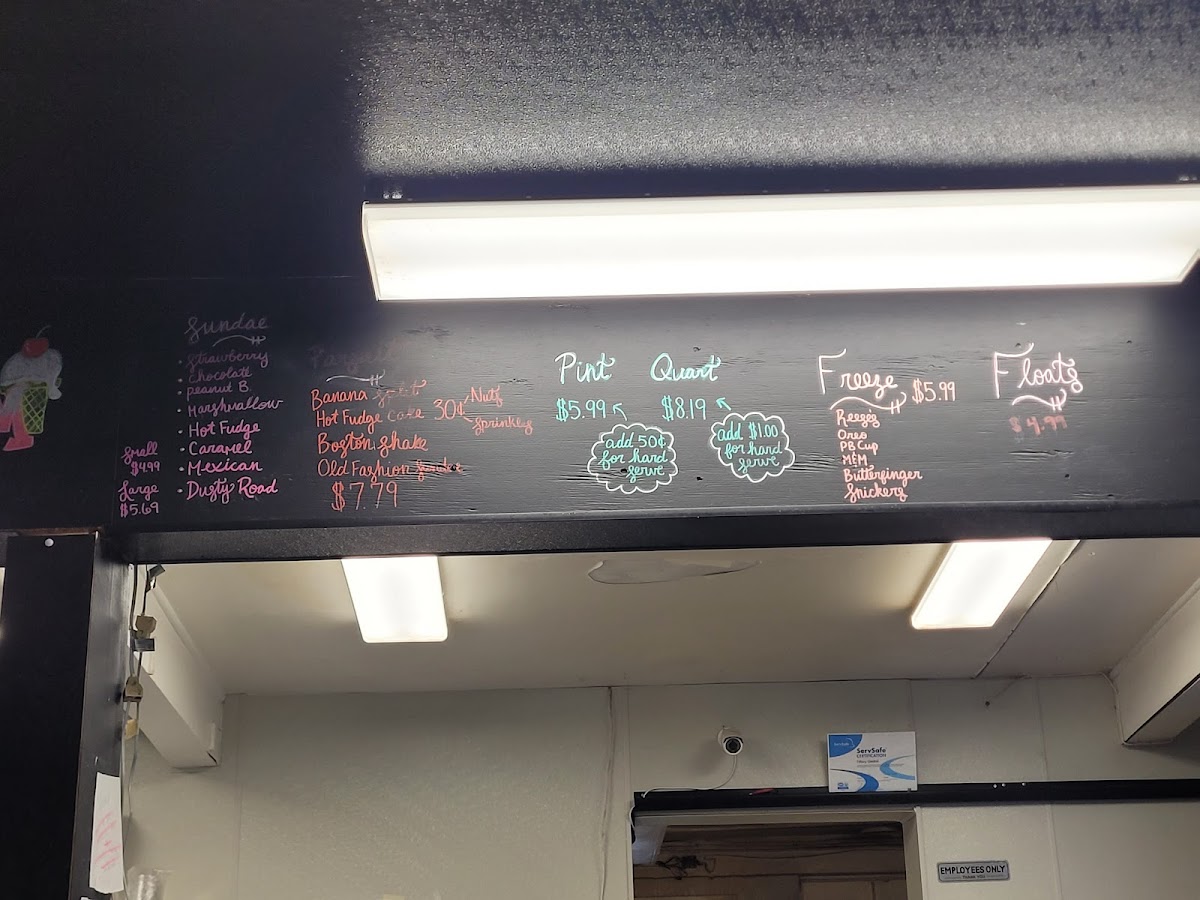 Sundae
• Strawberry
• Chocolate
• peanut B.
• Marshmallow
• Hot Fudge
• Caramel
• Mexican
• Dusty Road
Small
$4.99
Large
$5.69
Banana Split
Hot Fudge Cake
Boston Shake
Old Fashion
$7.79
30¢
Nuts
Sprinkles
Pint
$5.99
add 50¢
for hard
serve
Quart
$8.19
add $1.00
for hard
serve
Freeze
$5.99
Reese's
Oreo
PB Cup
M&M
Butterfinger
Snickers
Floats
$4.99
ServSafe
CERTIFICATION
EMPLOYEES ONLY
THANK YOU